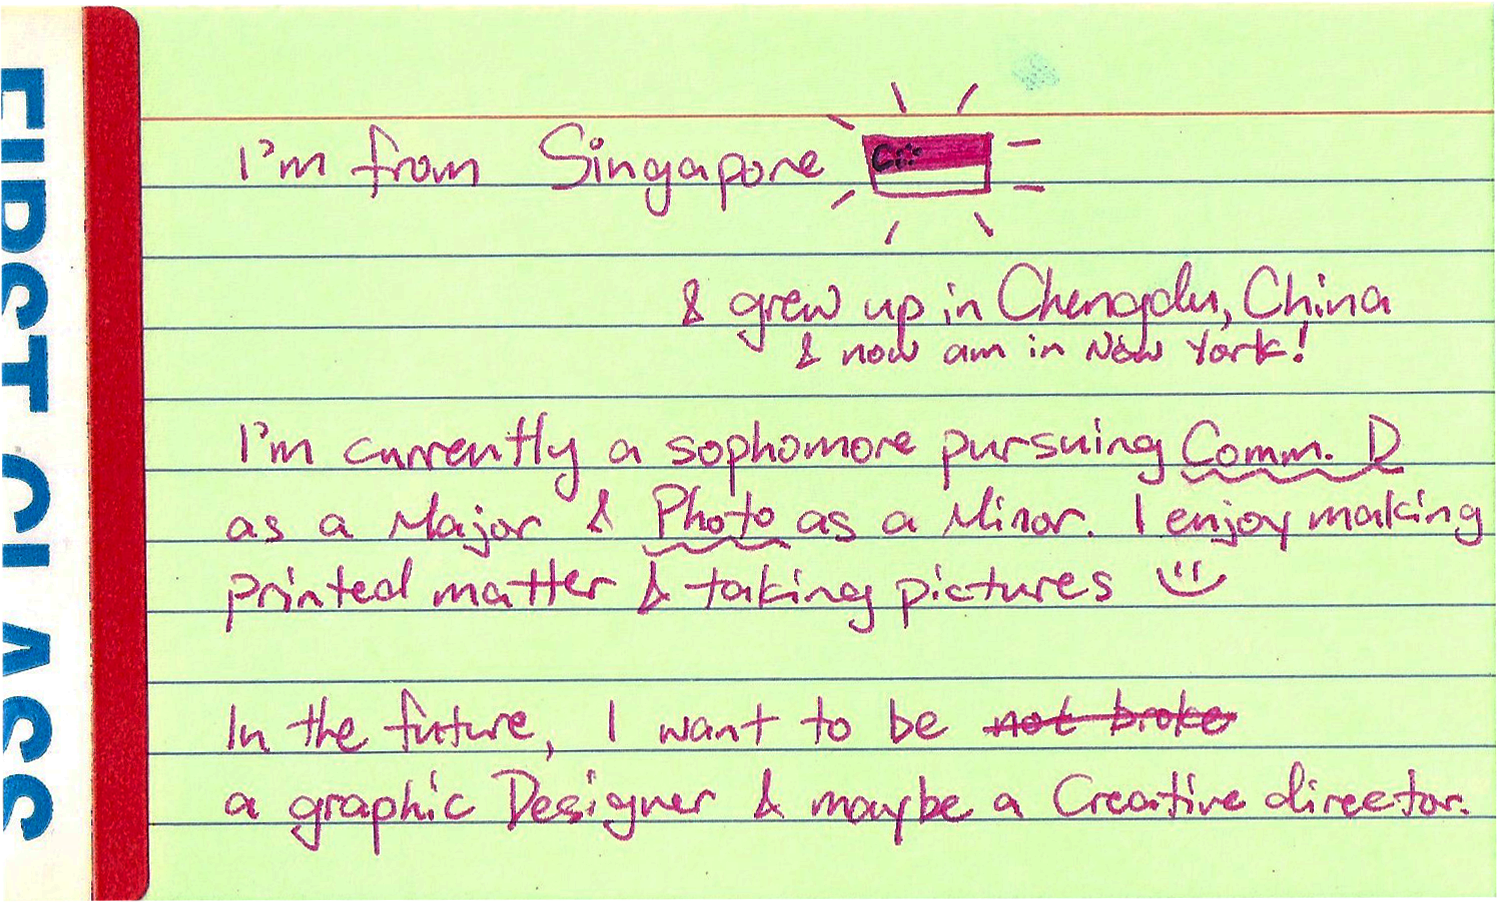 FIRST CLASS
I'm from Singapore
& grew up in Chengdu, China
& now am in New York!
I'm currently a sophomore pursuing Comm. D
as a Major & Photo as a Minor. I enjoy making
printed matter & taking pictures
In the future, I want to be not broke
a graphic Designer & maybe a Creative director.